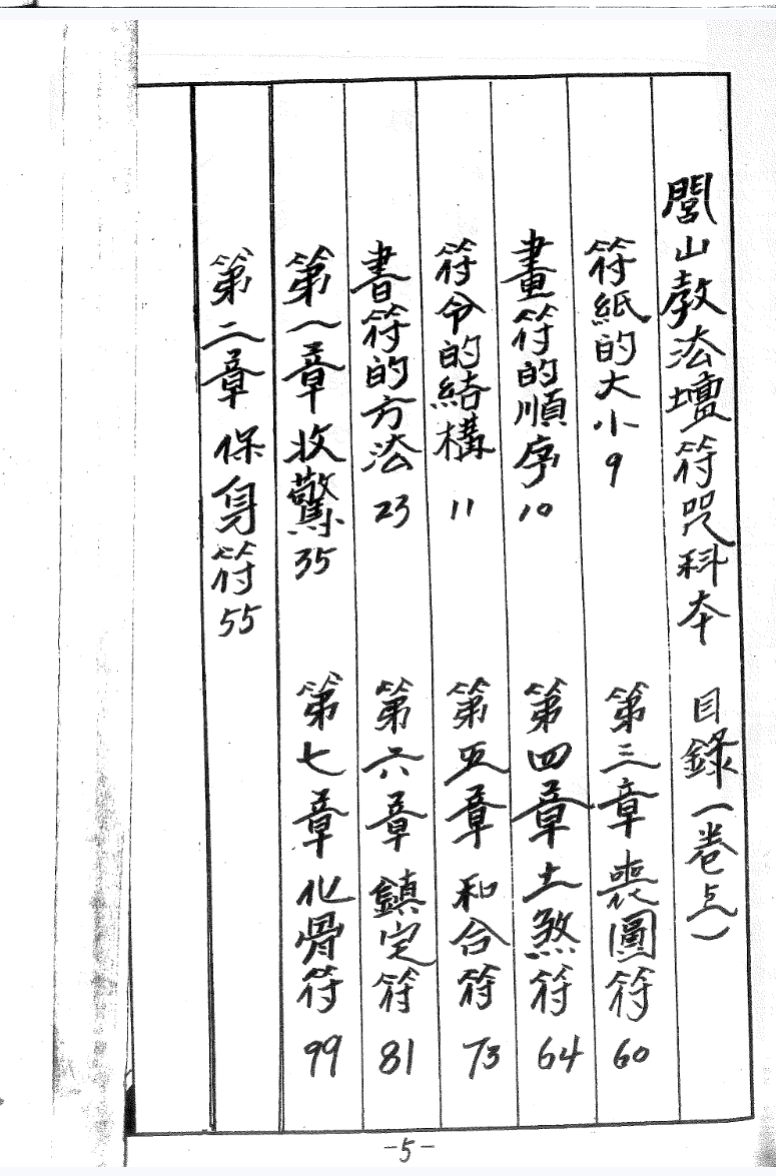 閭山教法壇符咒科本 目錄(卷)
符紙的大小 9
畫符的順序 10
符令的結構 11
書符的方法 23
第一章 收驚 35
第二章 保身符 55
第三章 喪符 60
第四章 土煞符 64
第五章 和合符 73
第六章 鎮宅符 81
第七章 化骨符 99
-5-